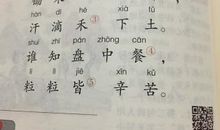 hàn dī hé xià tǔ
汗滴禾③下土。
shuí zhī pán zhōng cān
谁知盘中餐④，
lì lì jiē xīn kǔ
粒粒皆⑤辛苦。